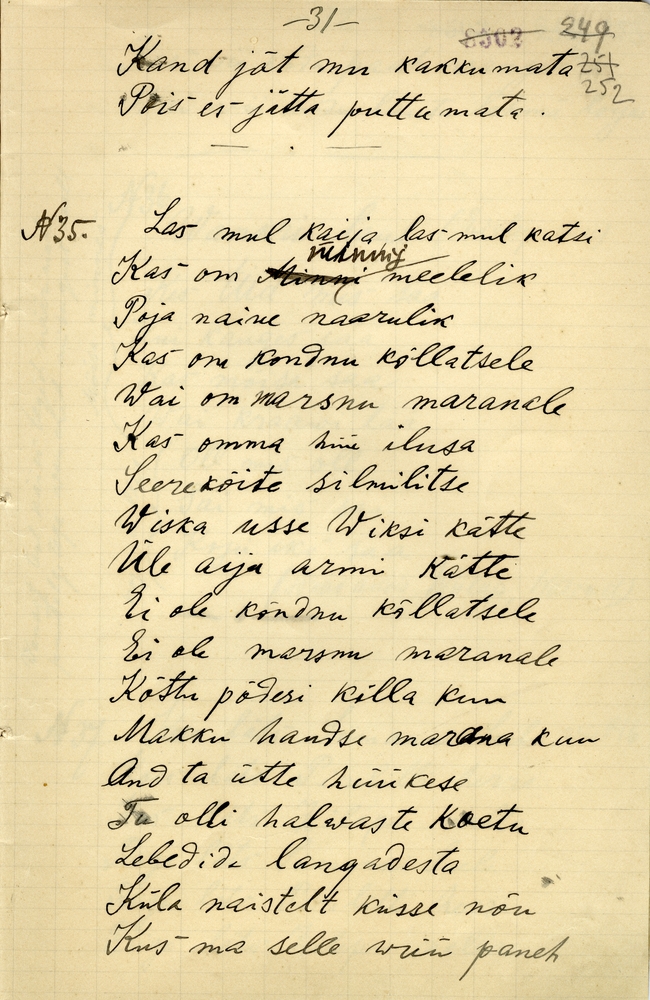 -31-
8502 249
251
252
Kand jöt mu kakkumata
Pois es jätta puttumata.
N 35.
Las mul kaija las mul katsi
Kas om Minni minnij meelelik
Poja naine naarulik
Kas om kondnu kõllatsele
Wai om marsnu maranale
Kas omma hüü ilusa
Seerekõite silmilitse
Wiska usse Wiksi kätte
Üle aija armi kätte
Ei ole kõndnu kõllatsele
Ei ole marsnu maranale
Kõttu põdesi kõlla kuu
Makku haudse marana kuu
And ta ütte hüükese
Tu olli halwaste Koetu
Lebedide langadesta
Küla naistelt küsse nõu
Kus ma selle wüü paneh